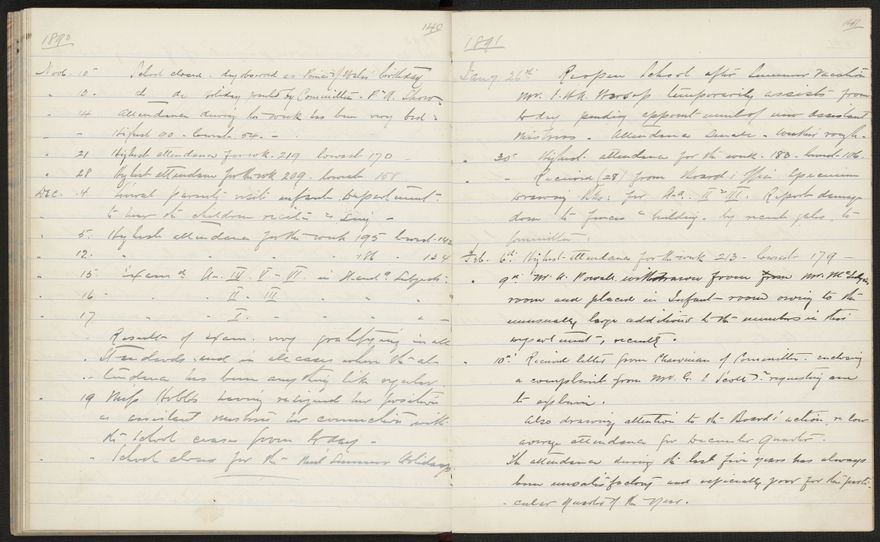 140
1890
Nov. 10 School closed. day observed as Prince of Wales' birthday
" 10. do do holiday granted by Committee. P. & A. Show.
" 14 Attendance during the week has been very bad.
Highest 00. lowest 54. -
" 21 Highest attendance for wk. 219 lowest 170 -
" 28 highest attendance for the wk 209. lowest 158
Dec. 4 Several parents visit infant Department.
to hear the children recite & sing -
" 5 Highest attendance for the week 195 lowest 142
" 12. " " " " 186 " 134
" 15 Exam of St. IV V - VI. in Subjects.
" 16 " " II - III " " " "
" 17 " " I. " " " "
Results of exam. very gratifying in all
Standards and in all cases where the at-
tendance has been anything like regular.
" 19 Miss Hobbs having resigned her position
as assistant mistress her connection with
the School ceases from to day -
" School closes for the Summer Holidays
141
1891
Jany 26th Reopen School after Summer Vacation
Mr. temporarily assists from
to day pending appointment of new assistant
Mistress. Attendance small - weather rough.
" 30 Highest attendance for the week. 183. lowest 106
" Received (28) from Board's Office Specimen
Drawing Bks. for Sts. II & III. Report damage
done to fences & building by recent gales, to
Committee.
Feb. 6th Highest attendance for the week 213 - lowest 179 -
" 9th Mr. A. Powell withdrawn from from Mr.
room and placed in Infant-room owing to the
unusually large additions to the numbers in this
department, recently.
" 10th Received letter from Chairman of Committee enclosing
a complaint from Mr. G. L Scott & requesting me
to explain.
Also drawing attention to the Board's action re low
average attendance for December Quarter.
The attendance during the last five years has always
been unsatisfactory and especially poor for this parti-
cular quarter of the year.